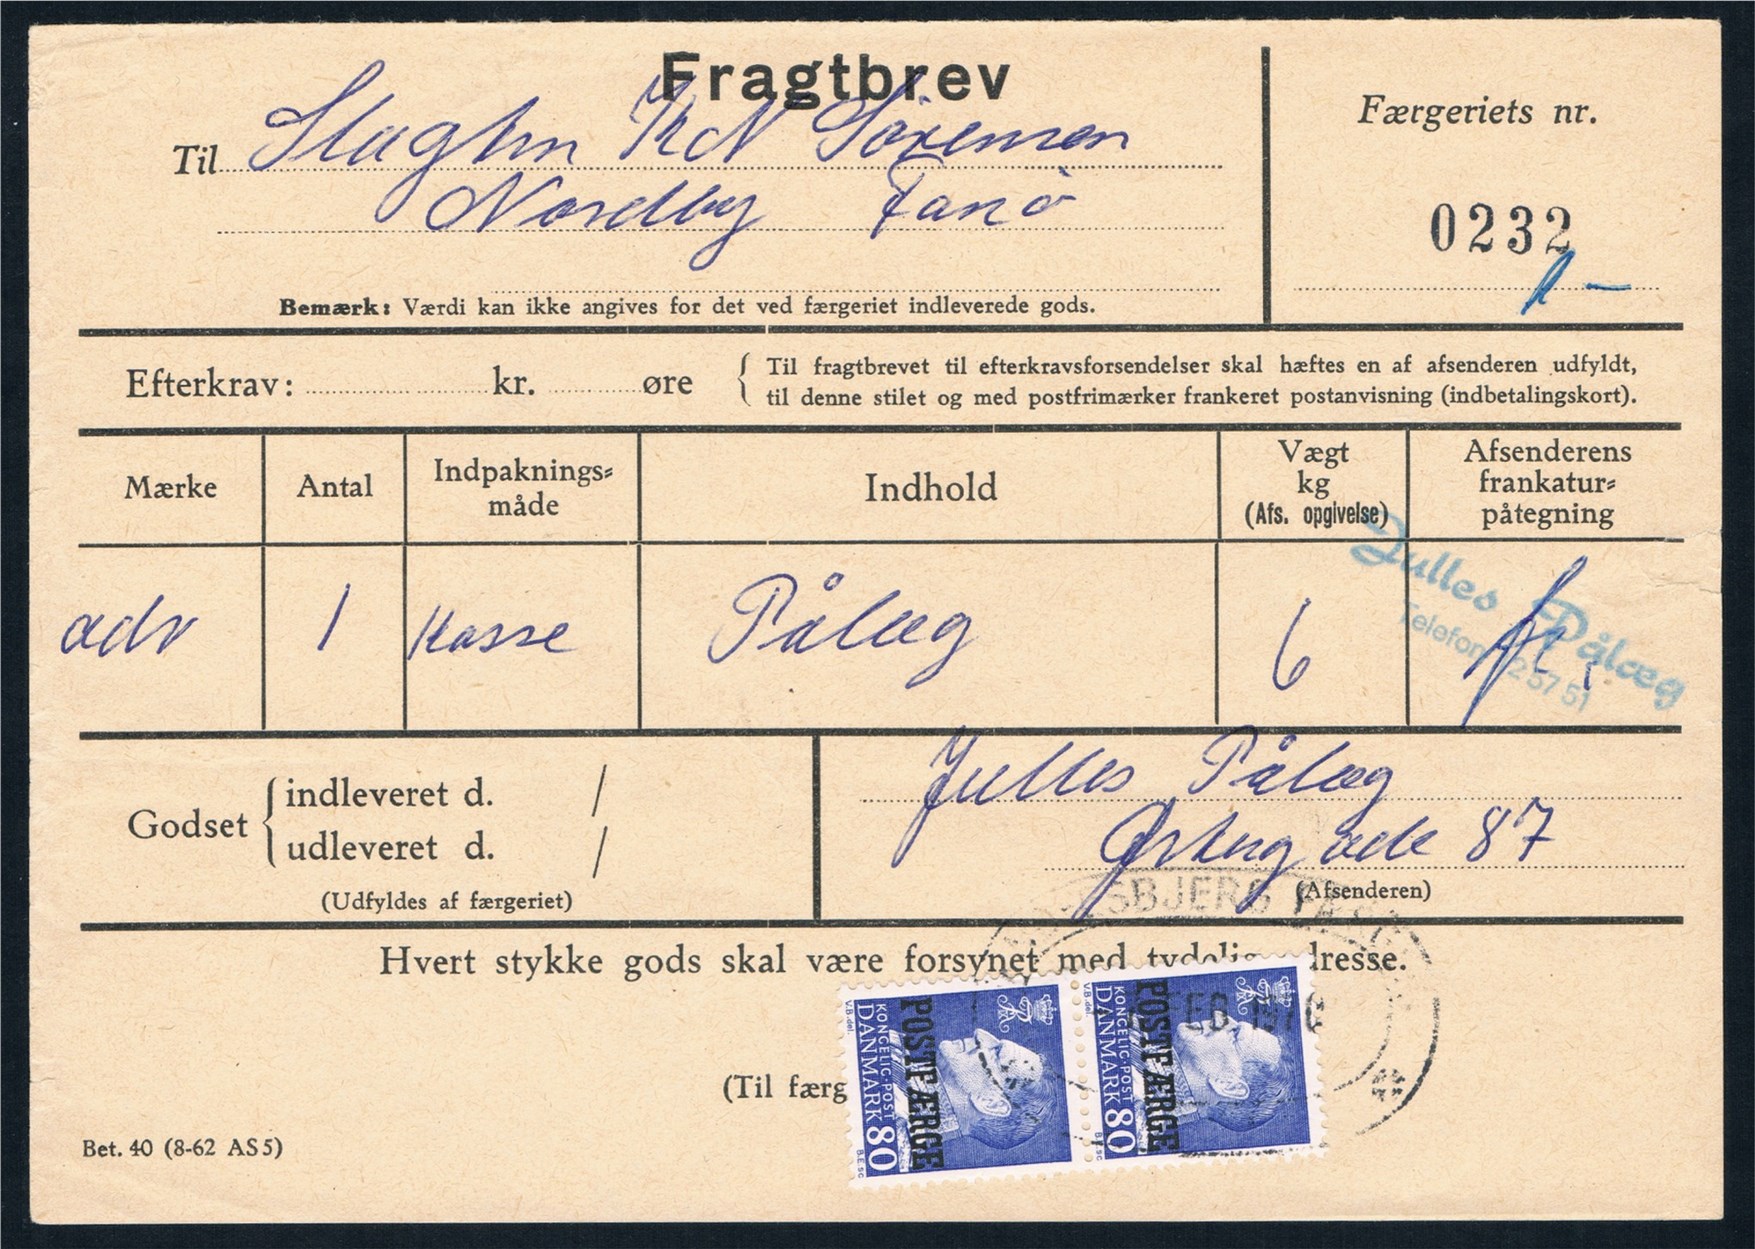 Fragtbrev
Til Slagtm KN Sørensen
Nordby Fanø
Bemærk: Værdi kan ikke angives for det ved færgeriet indleverede gods.
Færgeriets nr.
0232
Efterkrav: kr. øre
Til fragtbrevet til efterkravsforsendelser skal hæftes en af afsenderen udfyldt,
til denne stilet og med postfrimærker frankeret postanvisning (indbetalingskort).
Mærke
Antal
Indpaknings=
måde
Indhold
Vægt
kg
(Afs. opgivelse)
Afsenderens
frankatur=
påtegning
adr
1
Kasse
Pålæg
6
Julles Pålæg
Telefon 25751
Godset
indleveret d. /
udleveret d. /
(Udfyldes af færgeriet)
Julles Pålæg
Østergade 87
(Afsenderen)
Hvert stykke gods skal være forsynet med tydelig dresse.
(Til færg
Bet. 40 (8-62 AS5)
KONGELIG·POST
DANMARK 80
POSTFÆRGE
V.B.del.
B.E.sc
KONGELIG·POST
DANMARK 80
POSTFÆRGE
V.B.del.
B.E.sc
SBJERG FÆR
FEB